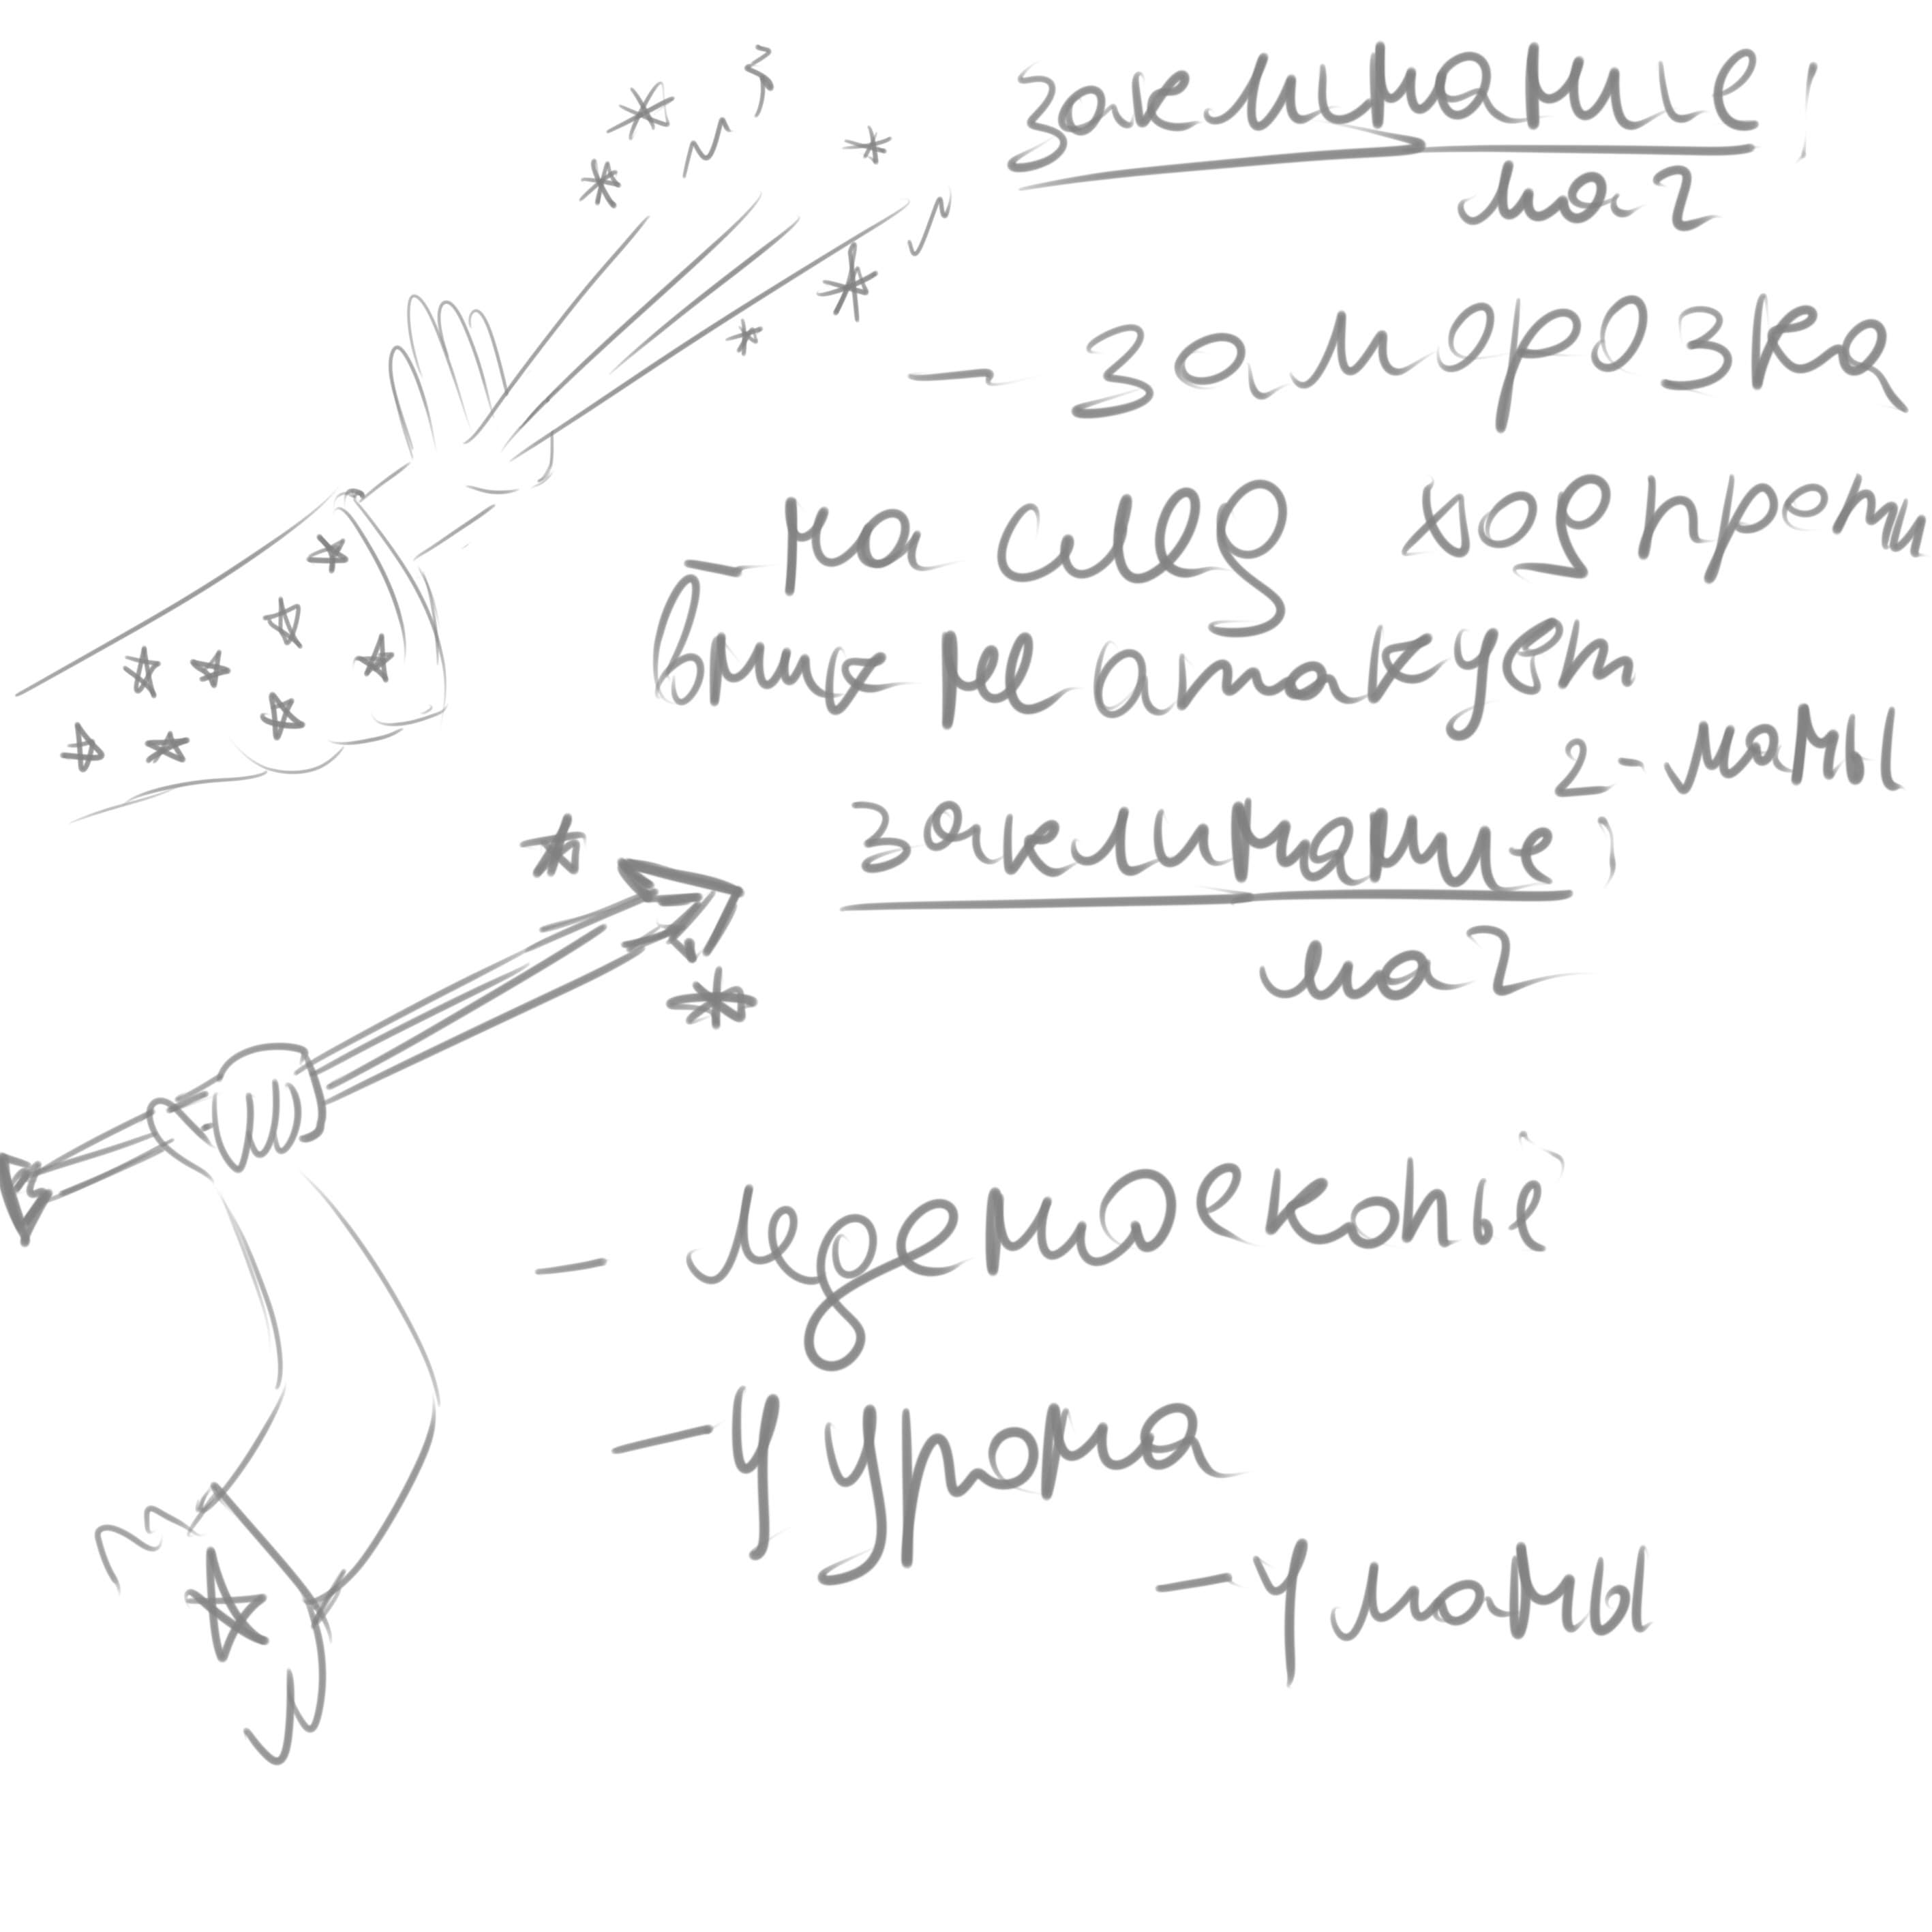 заклинание:
маг
- заморозка
- на след ход проти
вник не атакует
2 - маны
заклинание:
маг
- ледяное копьё
- 4 урона
- 4 маны